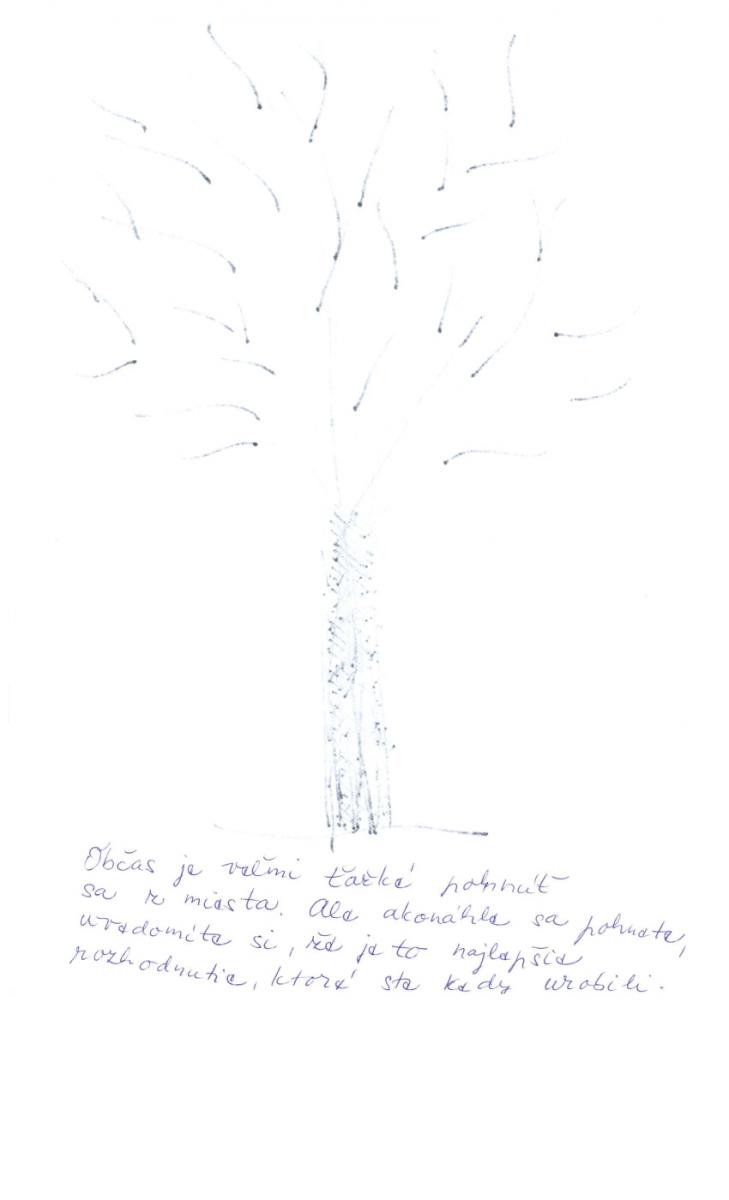 Občas je veľmi ťažké pohnúť
sa z miesta. Ale akonáhle sa pohnete,
uvedomíte si, že je to najlepšie
rozhodnutie, ktoré ste kedy urobili.